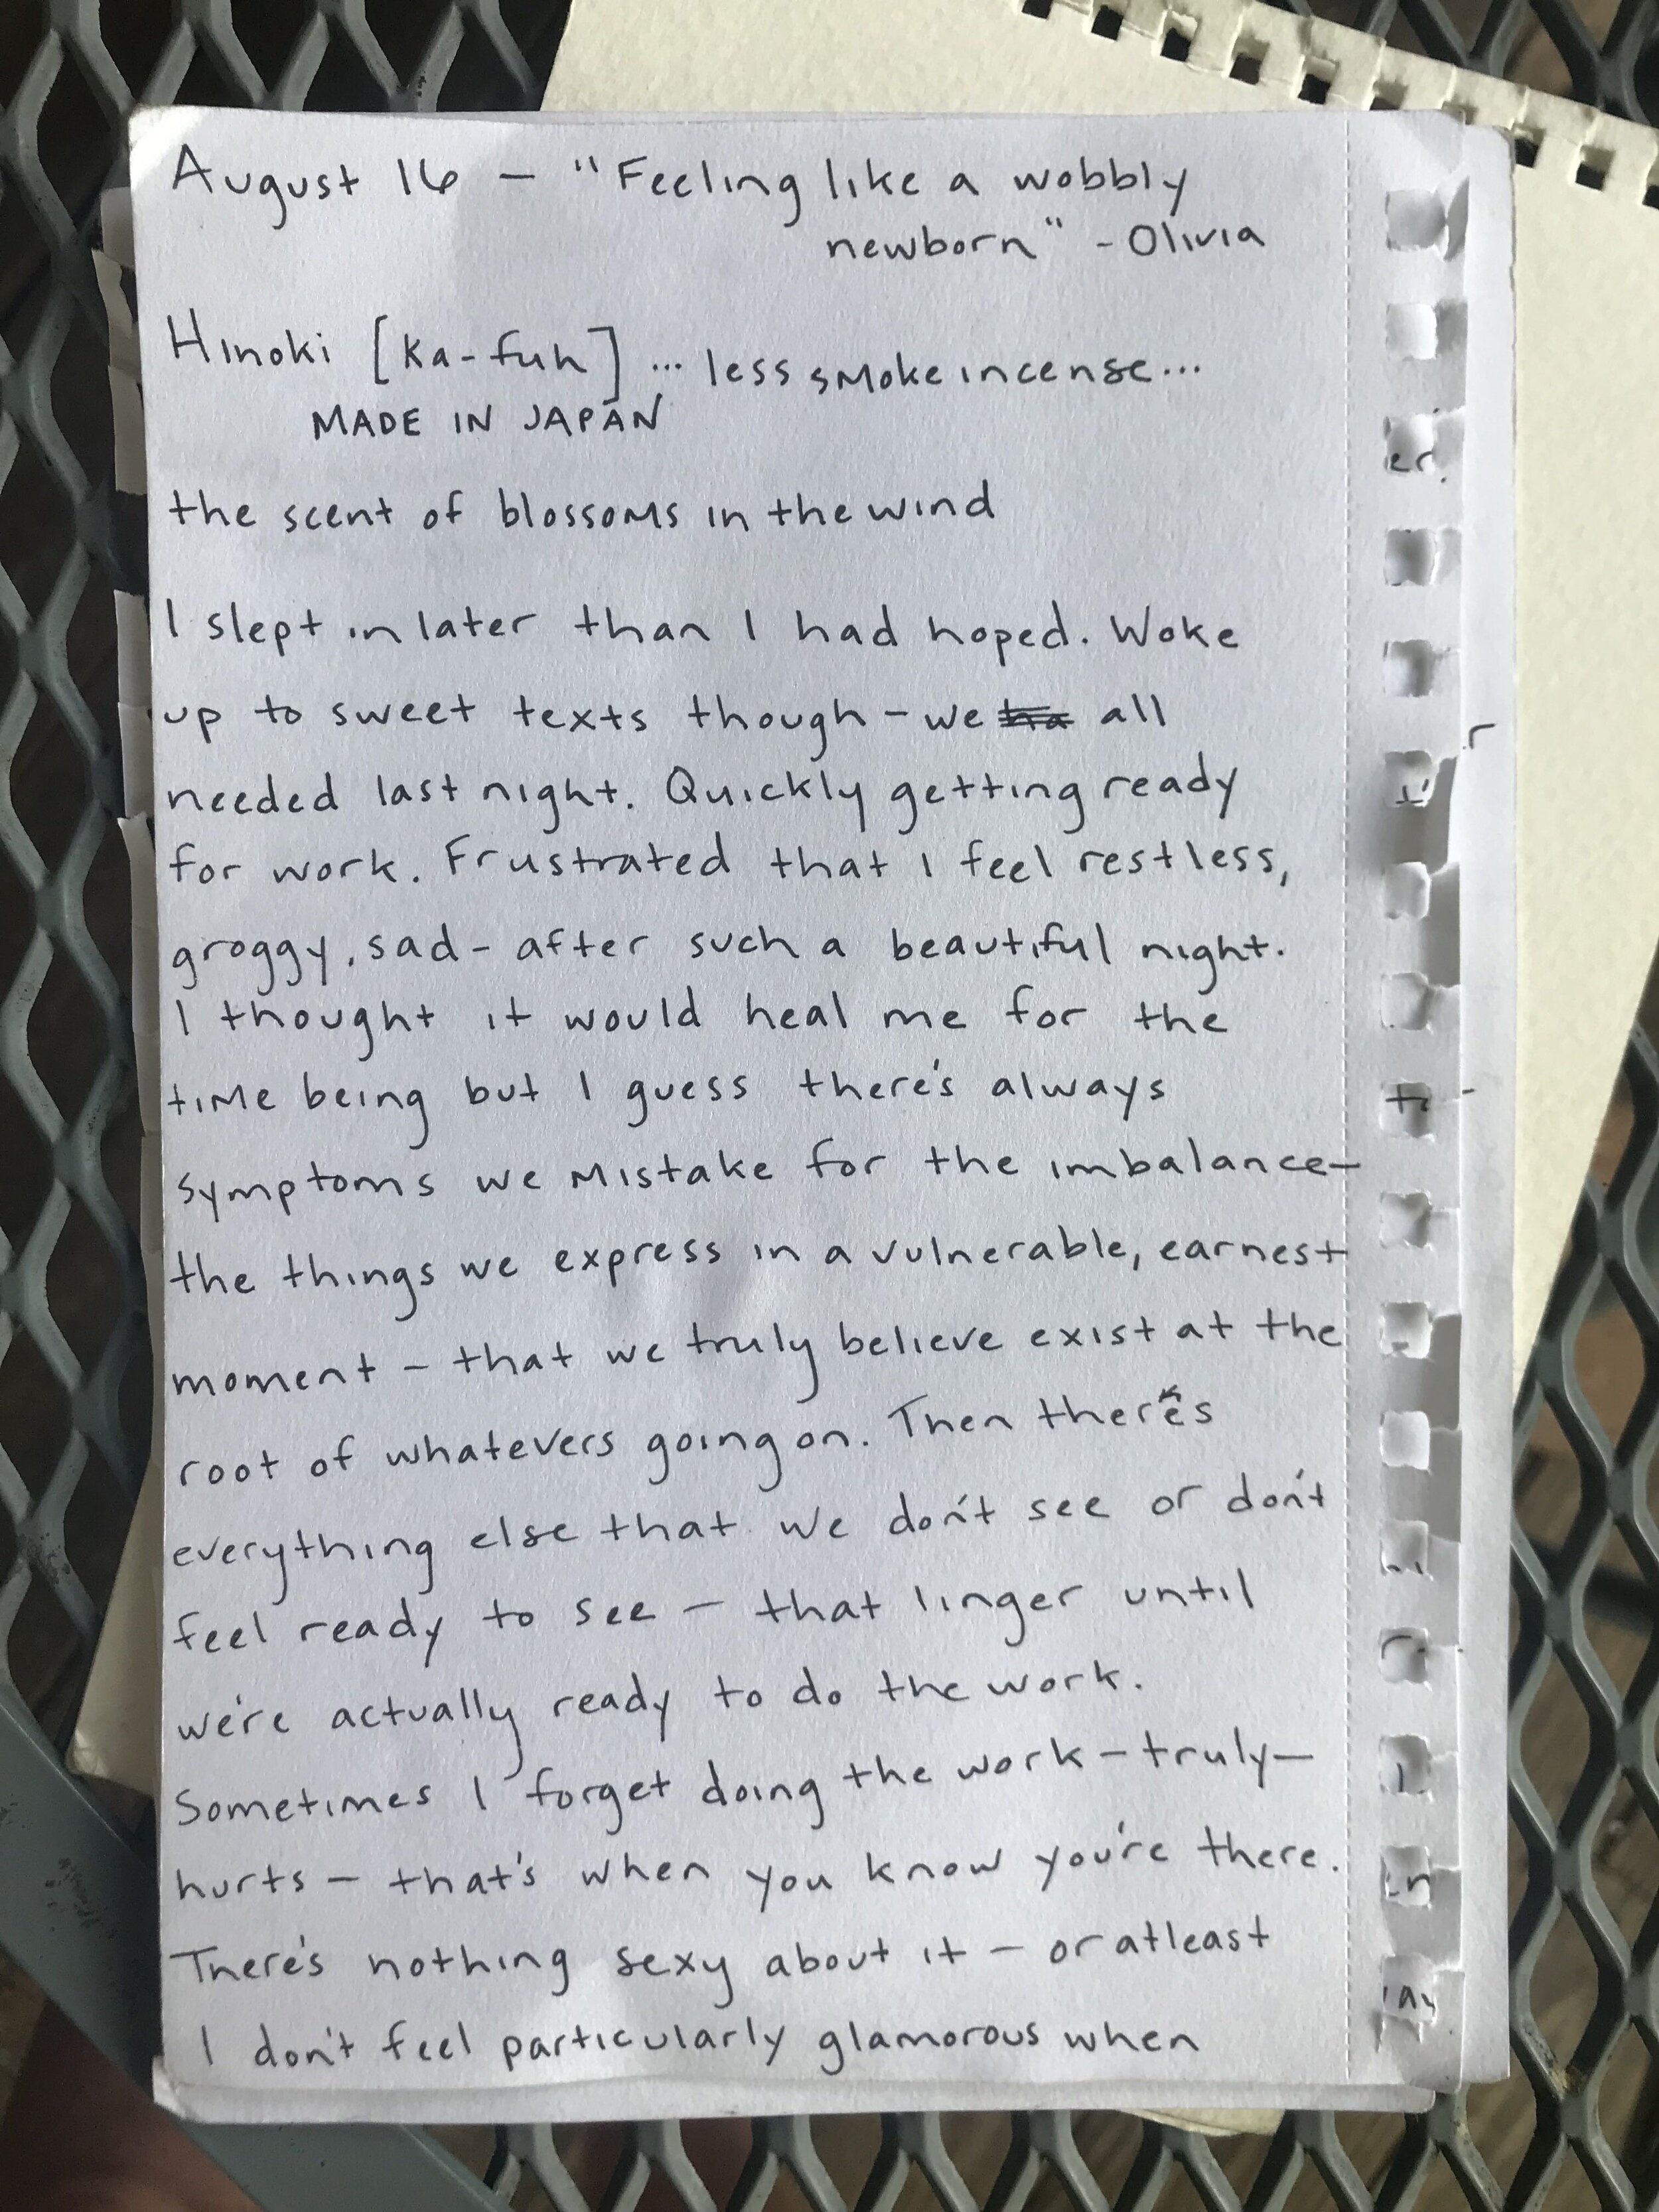 August 16 – "Feeling like a wobbly
newborn" - Olivia
Hinoki [Ka-fuh] ... less smoke incense...
MADE IN JAPAN
the scent of blossoms in the wind
I slept in later than I had hoped. Woke
up to sweet texts though - we all
needed last night. Quickly getting ready
for work. Frustrated that I feel restless,
groggy, sad - after such a beautiful night.
I thought it would heal me for the
time being but I guess there's always
symptoms we mistake for the imbalance -
the things we express in a vulnerable, earnest
moment - that we truly believe exist at the
root of whatevers going on. Then there's
everything else that we don't see or don't
feel ready to see - that linger until
we're actually ready to do the work.
Sometimes I forget doing the work - truly -
hurts - that's when you know you're there.
There's nothing sexy about it - or atleast
I don't feel particularly glamorous when